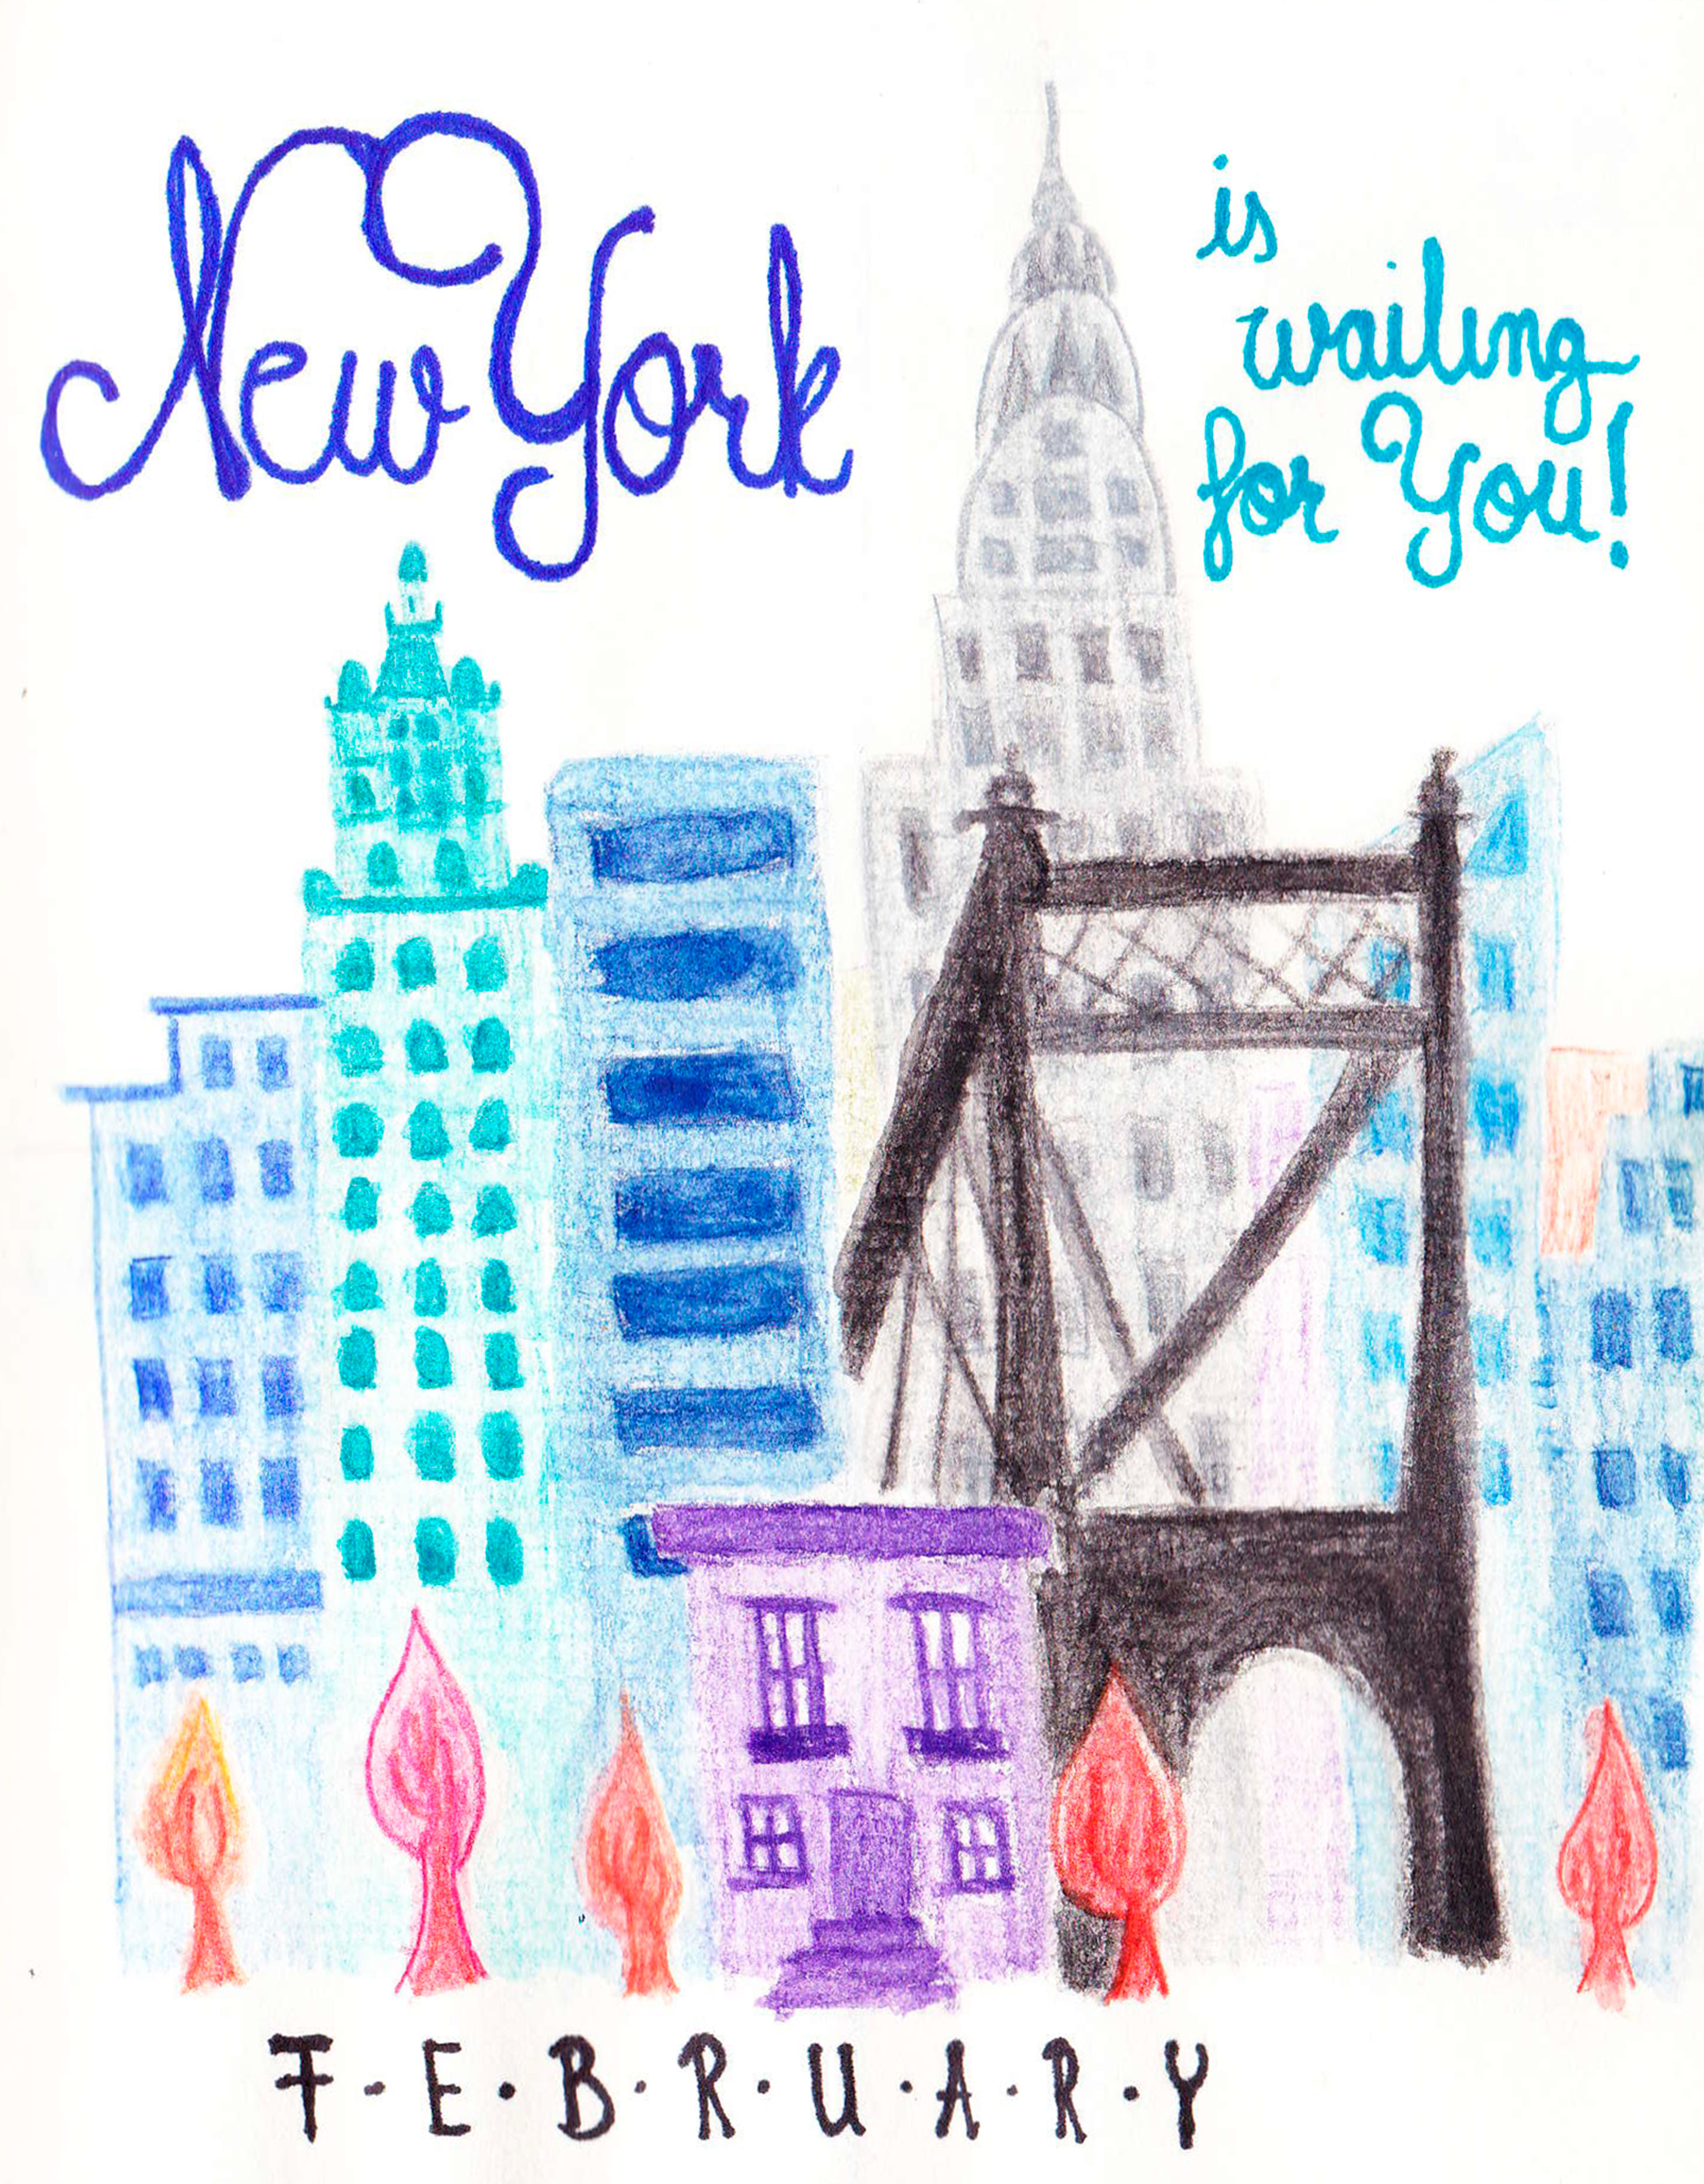 New York
is
wailing
for You!
F·E·B·R·U·A·R·Y